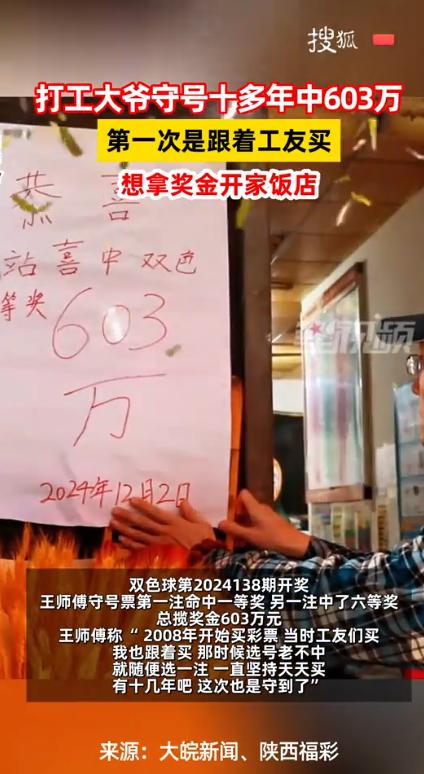 搜狐
打工大爷守号十多年中603万
第一次是跟着工友买
想拿奖金开家饭店
恭喜
站喜中双色
等奖
603
万
2024年12月2日
双色球第2024138期开奖
王师傅守号票第一注命中一等奖 另一注中了六等奖
总揽奖金603万元
王师傅称“ 2008年开始买彩票 当时工友们买
我也跟着买 那时候选号老不中
就随便选一注 一直坚持天天买
有十几年吧 这次也是守到了”
来源：大皖新闻、陕西福彩